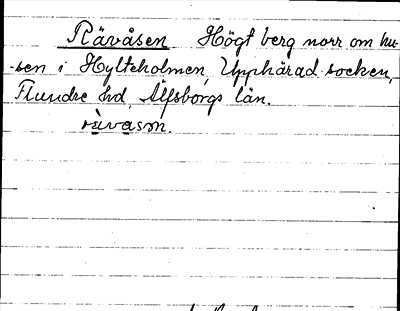 Rävåsen Högt berg norr om hu-
-sen i Hylteholmen, Upphärad socken,
Flundre hd, Älfsborgs län.